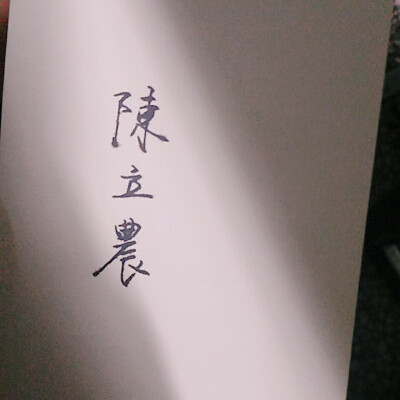 陳立農